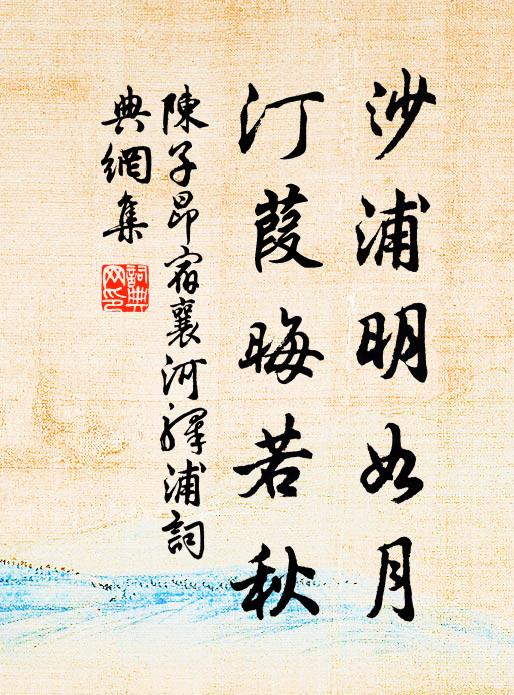 沙浦明如月
汀葭晦若秋
陳子昂宿襄河驛浦詞
典網集
詞典
网印